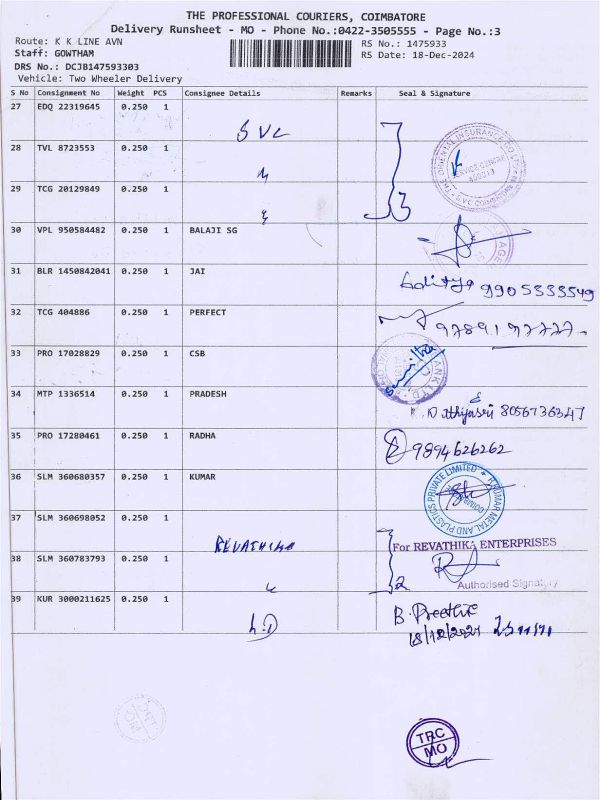 THE PROFESSIONAL COURIERS, COIMBATORE
Delivery Runsheet - MO - Phone No.:0422-3505555 - Page No.:3
Route: K K LINE AVN
RS No.: 1475933
Staff: GOWTHAM
RS Date: 18-Dec-2024
DRS No.: DCJB147593303
Vehicle: Two Wheeler Delivery
S No Consignment No Weight PCS Consignee Details Remarks Seal & Signature
27 EDQ 22319645 0.250 1
SVC
28 TVL 8723553 0.250 1
29 TCG 20129849 0.250 1
3
30 VPL 950584482 0.250 1 BALAJI SG
31 BLR 1450842041 0.250 1 JAI
Aditya 9905533549
32 TCG 404886 0.250 1 PERFECT
33 PRO 17028829 0.250 1 CSB
34 MTP 1336514 0.250 1 PRADESH
8056736347
35 PRO 17280461 0.250 1 RADHA
9894626262
36 SLM 360680357 0.250 1 KUMAR
KUMAR METAL AND PLASTICS PRIVATE LIMITED
37 SLM 360698052 0.250 1
REVATHIKA
For REVATHIKA ENTERPRISES
38 SLM 360783793 0.250 1
2
Authorised Signatory
39 KUR 3000211625 0.250 1
B. Preethi
TRC
MO